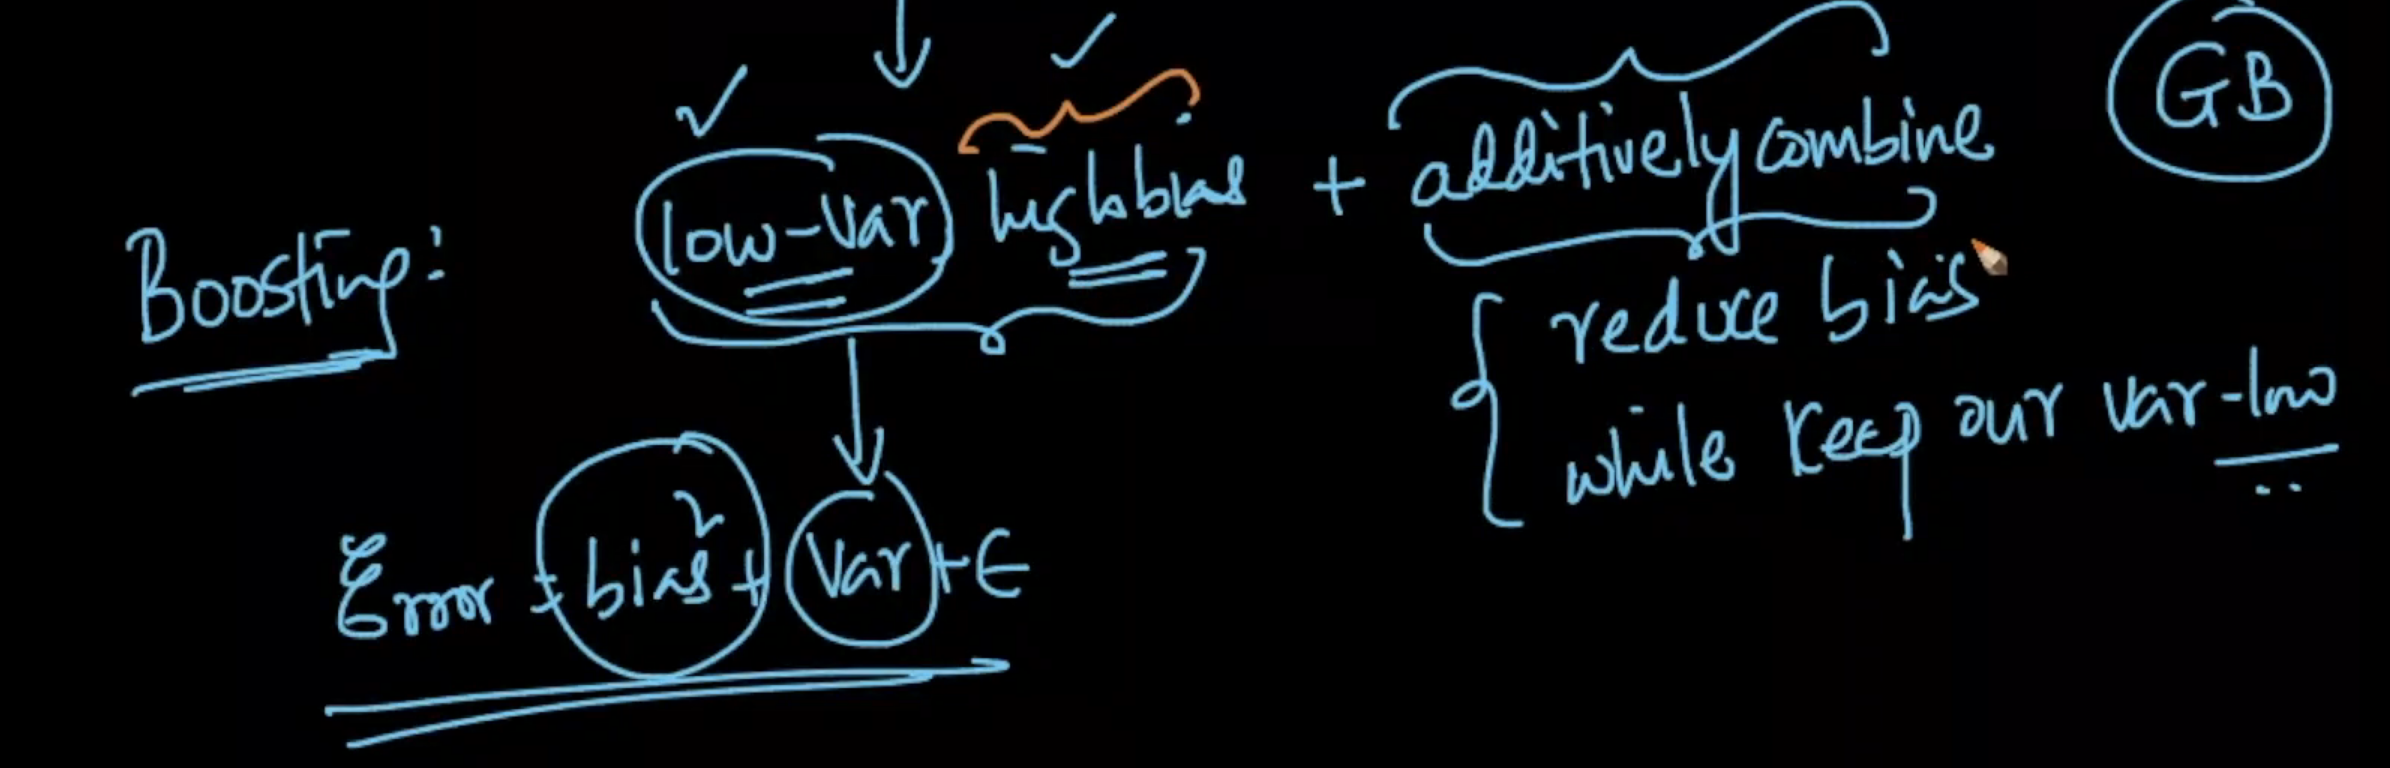 GB
Boosting: low-var high bias + additively combine
reduce bias
while keep our var-low
Error = bias² + Var + ε